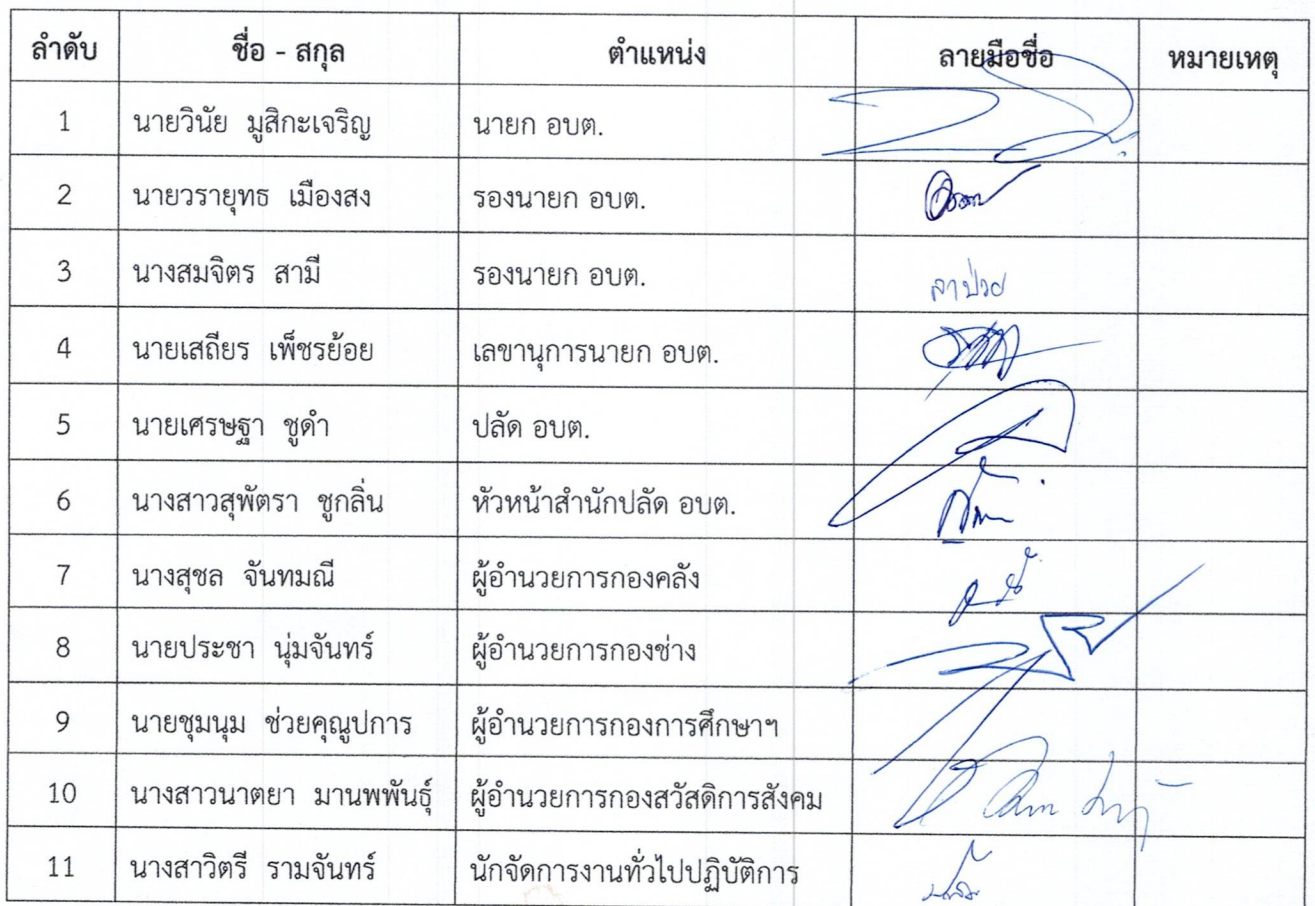 ลำดับ ชื่อ - สกุล ตำแหน่ง ลายมือชื่อ หมายเหตุ
1 นายวินัย มูสิกะเจริญ นายก อบต.
2 นายวรายุทธ เมืองสง รองนายก อบต.
3 นางสมจิตร สามี รองนายก อบต. ลาป่วย
4 นายเสถียร เพ็ชรย้อย เลขานุการนายก อบต.
5 นายเศรษฐา ชูดำ ปลัด อบต.
6 นางสาวสุพัตรา ชูกลิ่น หัวหน้าสำนักปลัด อบต.
7 นางสุชล จันทมณี ผู้อำนวยการกองคลัง
8 นายประชา นุ่มจันทร์ ผู้อำนวยการกองช่าง
9 นายชุมนุม ช่วยคุณูปการ ผู้อำนวยการกองการศึกษาฯ
10 นางสาวนาตยา มานพพันธุ์ ผู้อำนวยการกองสวัสดิการสังคม
11 นางสาวิตรี รามจันทร์ นักจัดการงานทั่วไปปฏิบัติการ